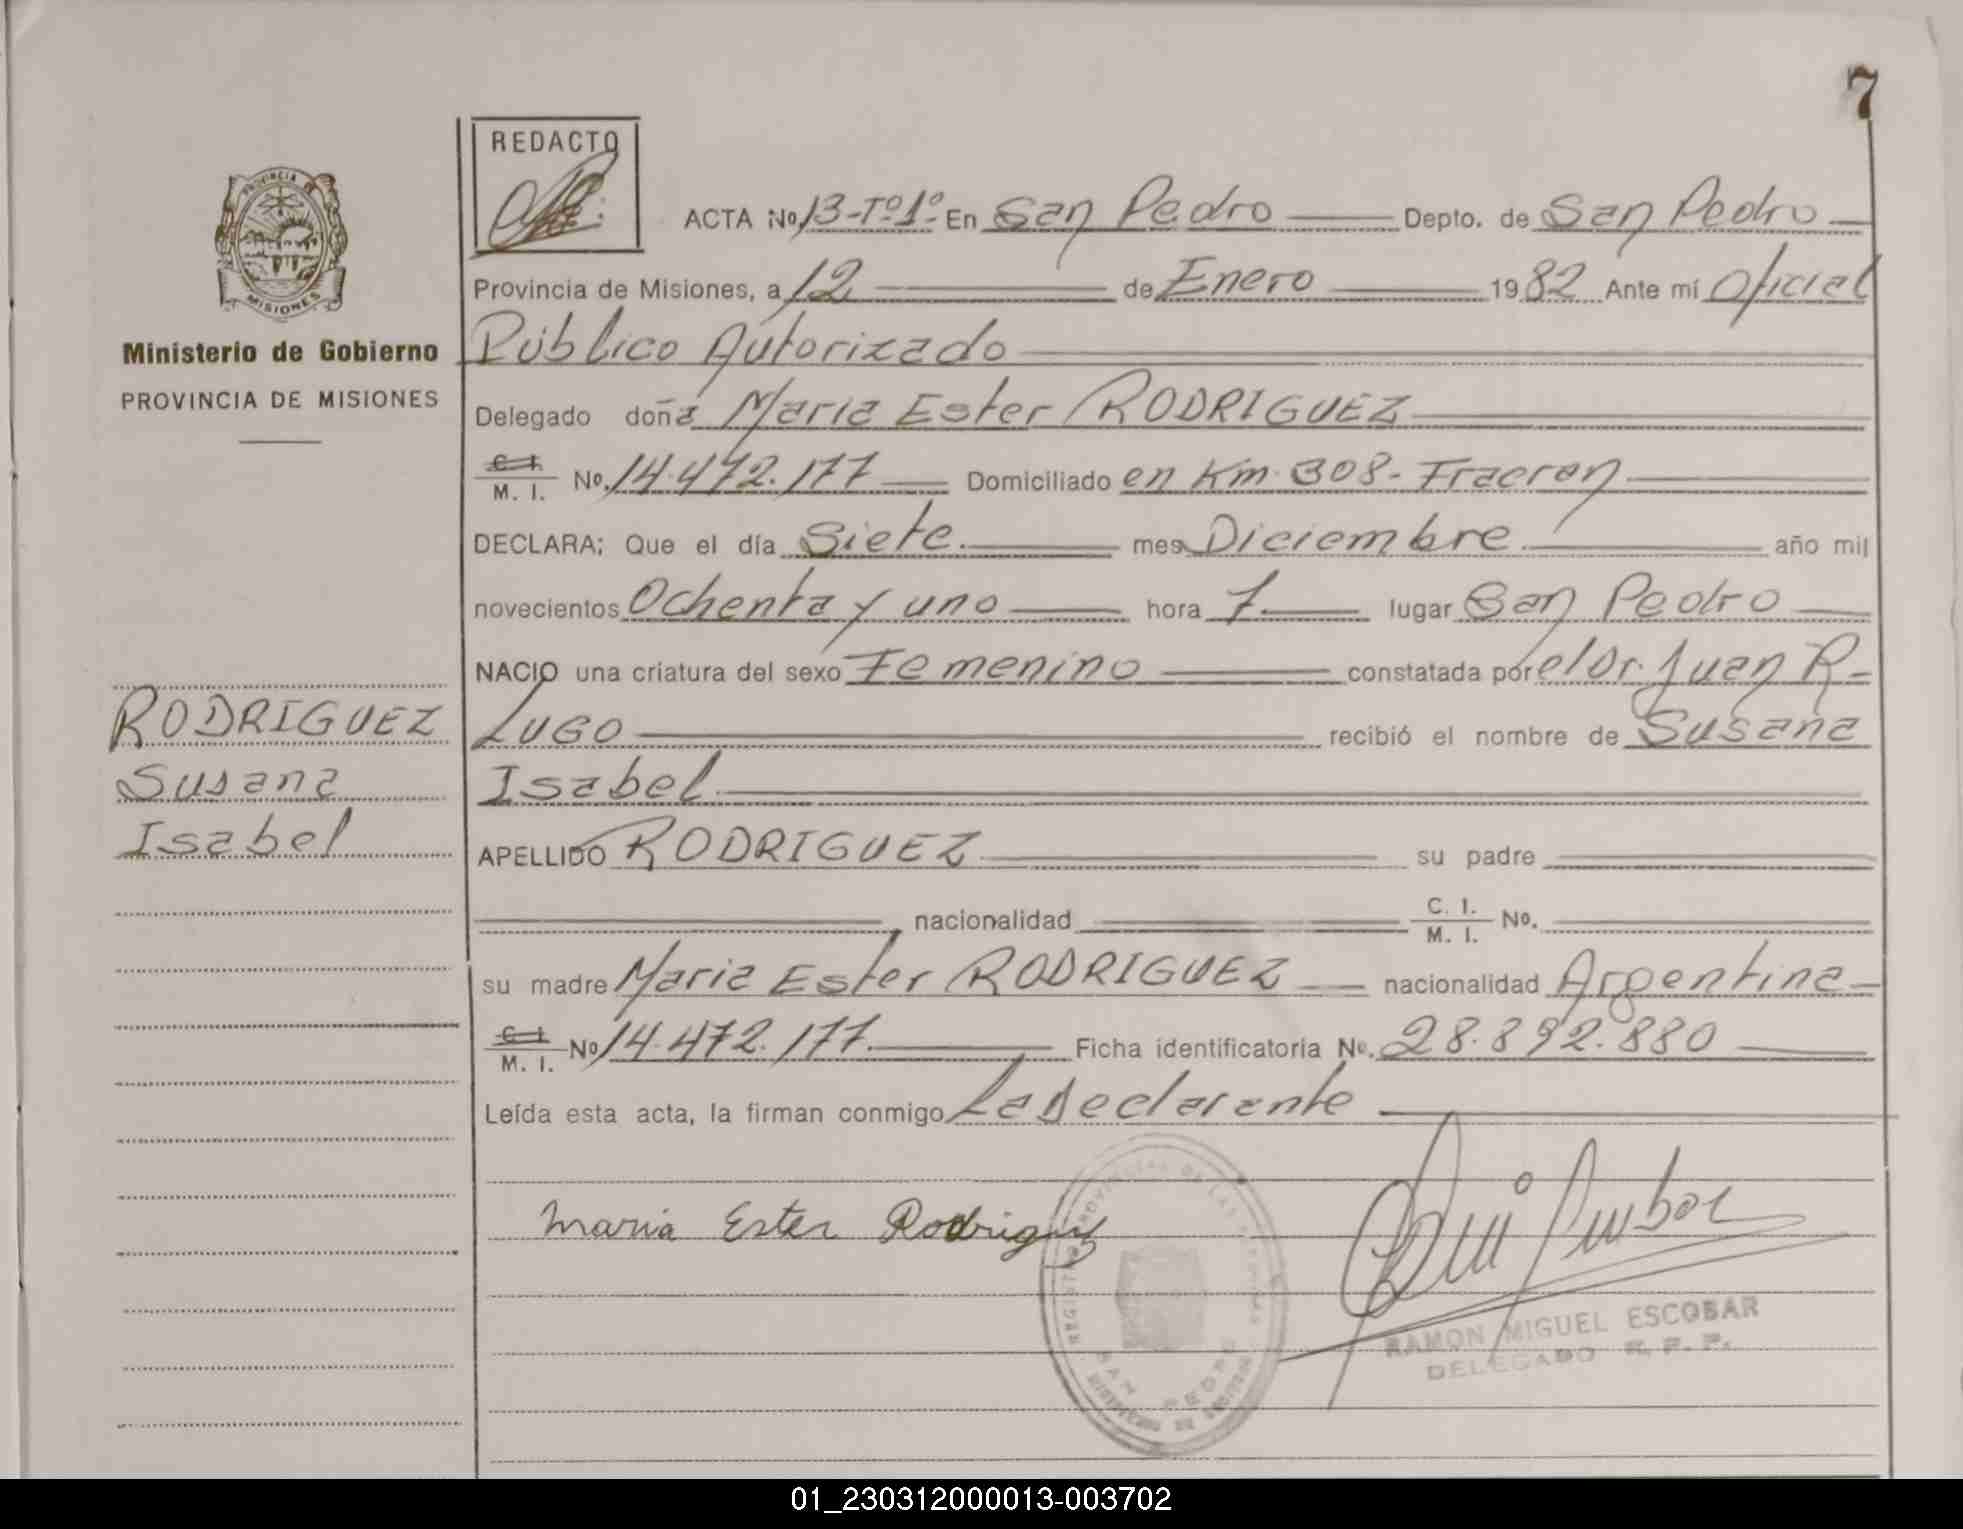 7
REDACTO
PROVINCIA DE
MISIONES
Ministerio de Gobierno
PROVINCIA DE MISIONES
RODRIGUEZ
Susana
Isabel
ACTA No. 13-Tº1º- En San Pedro Depto. de San Pedro
Provincia de Misiones, a 12 de Enero 1982 Ante mí Oficial
Público Autorizado
Delegado doña Maria Ester RODRIGUEZ
C. I. M. I. No. 14.472.177 Domiciliado en Km. 308- Fracran
DECLARA; Que el día Siete. mes Diciembre. año mil
novecientos Ochenta y uno hora 7 lugar San Pedro
NACIO una criatura del sexo Femenino constatada por el Dr. Juan R-
LUGO recibió el nombre de Susana
Isabel.
APELLIDO RODRIGUEZ su padre
nacionalidad C. I. M. I. No.
su madre Maria Ester RODRIGUEZ nacionalidad Argentina
C. I. M. I. No 14.472.177. Ficha identificatoria No. 28.892.880
Leída esta acta, la firman conmigo La Declarante
Maria Ester Rodriguez
SAN PEDRO
RAMON MIGUEL ESCOBAR
DELEGADO R. P. P.
01_230312000013-003702